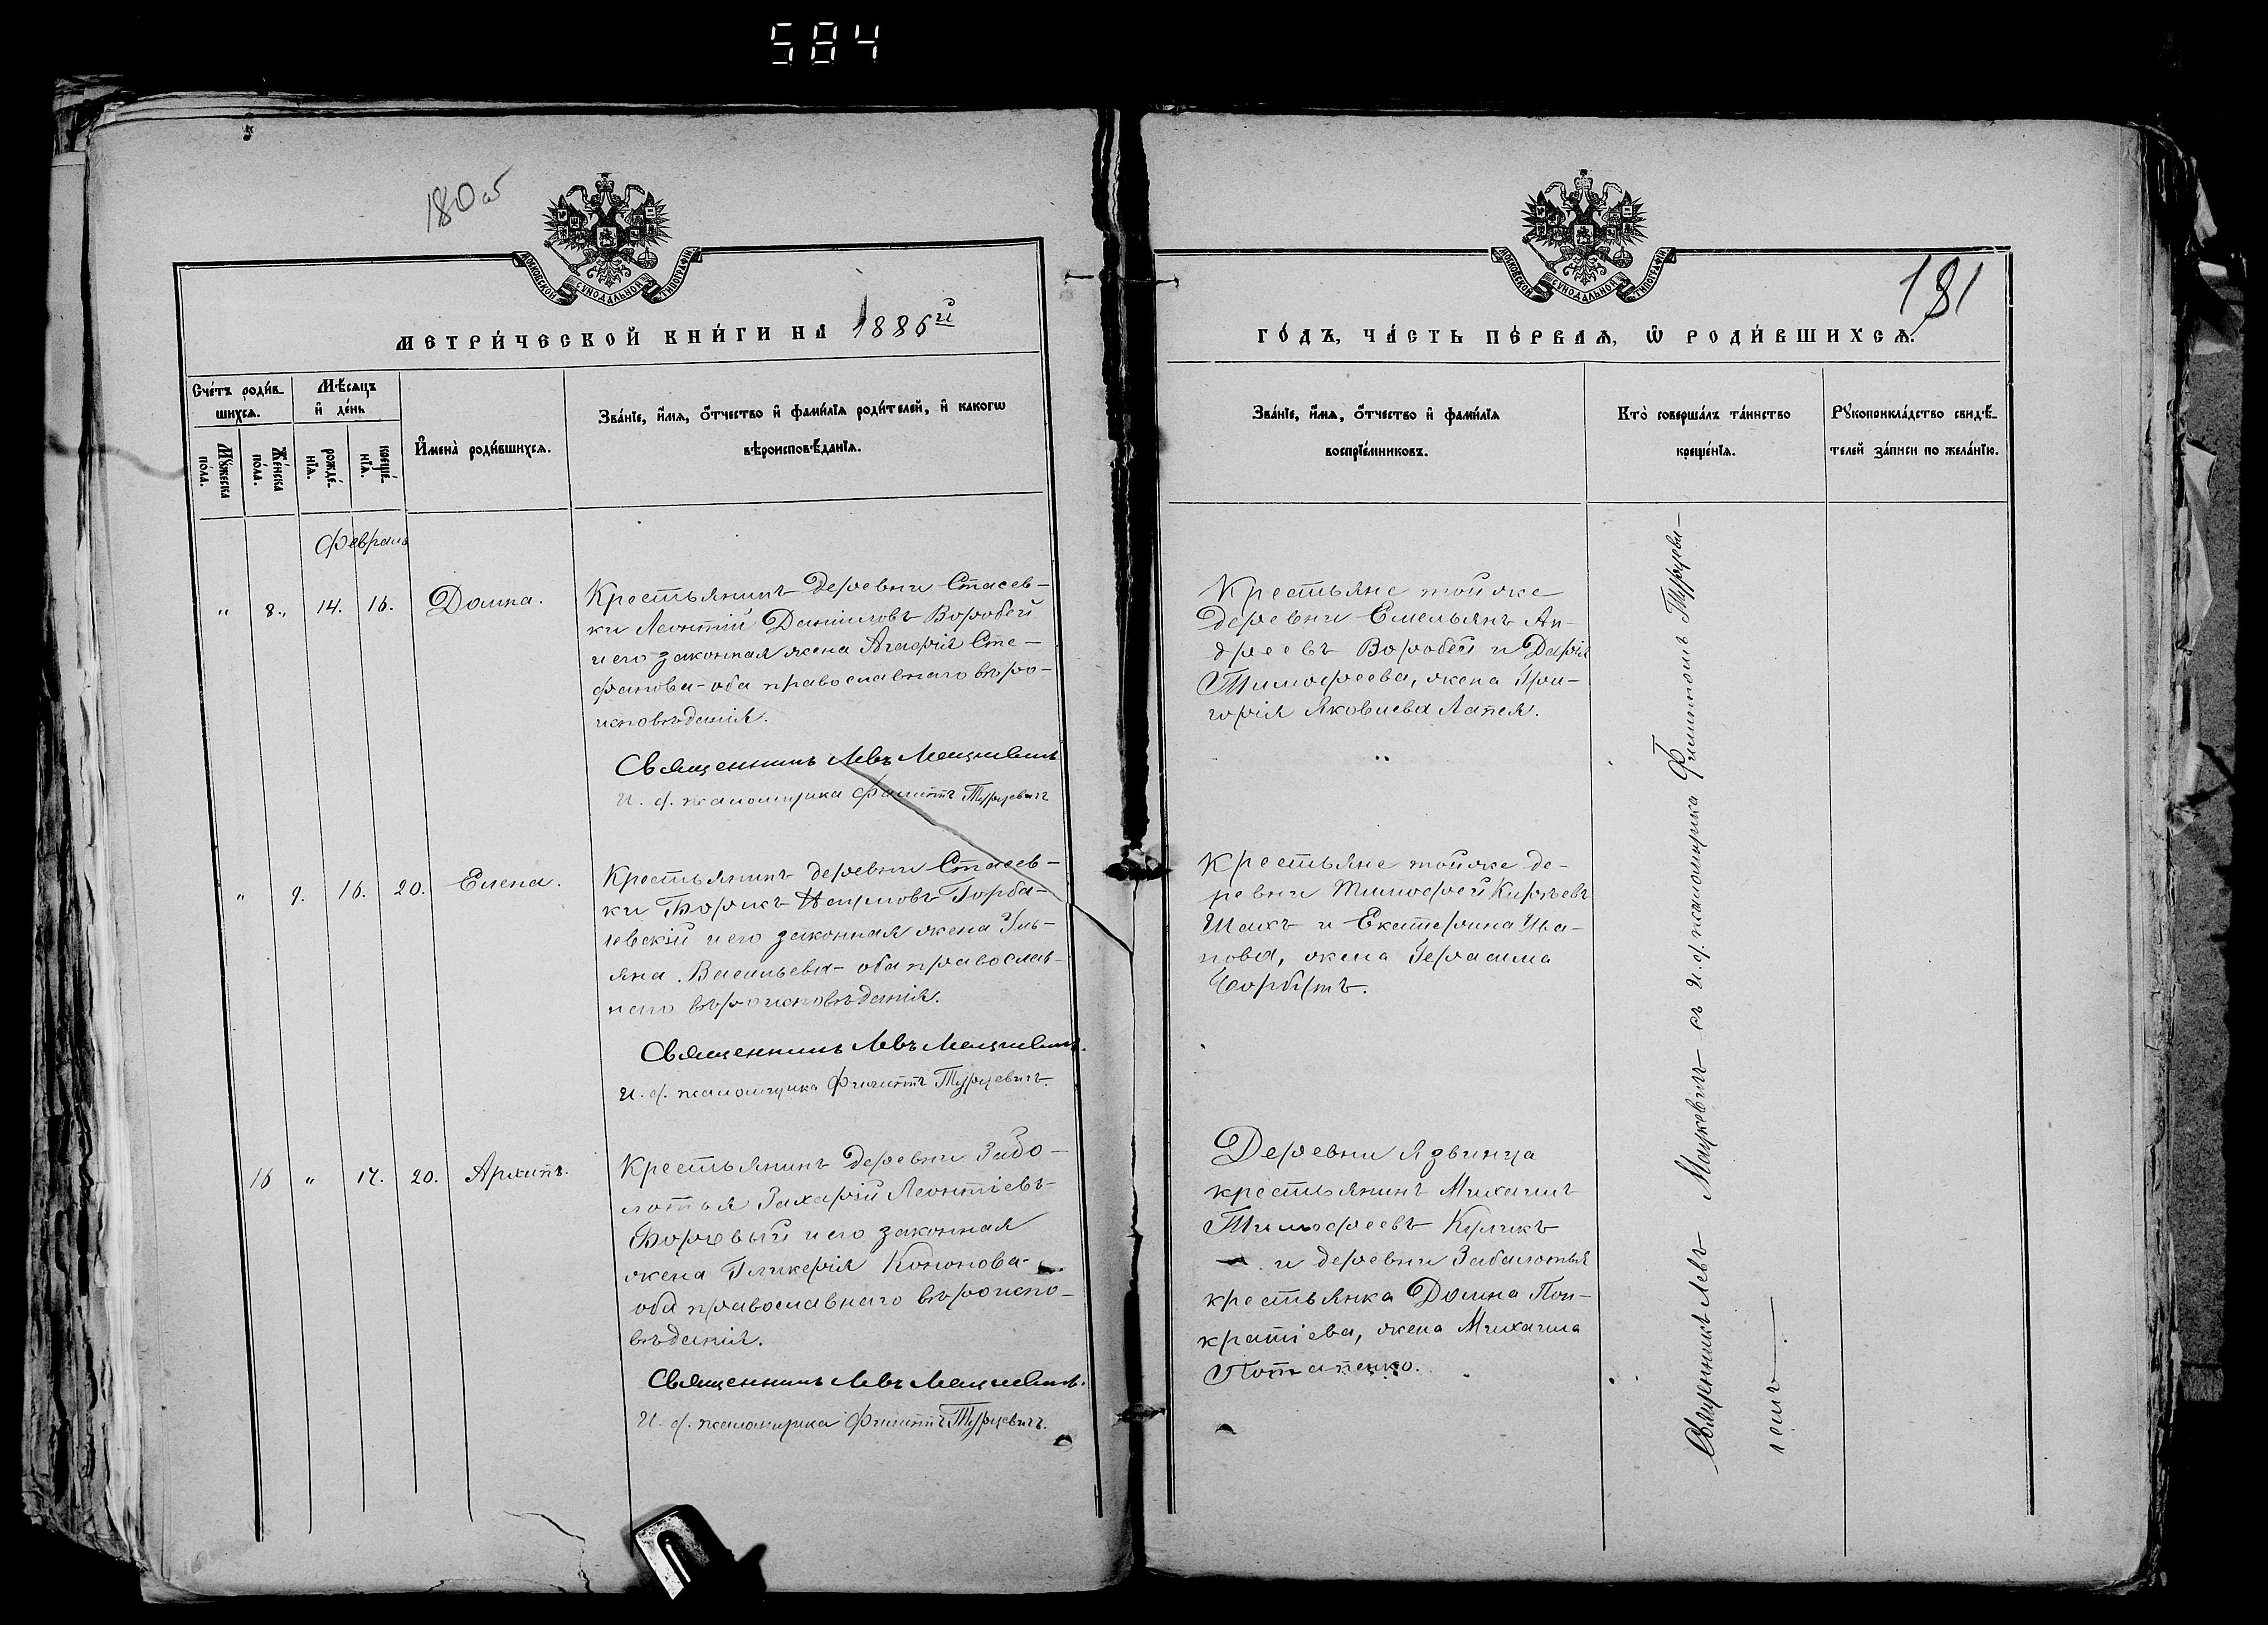 584
180об
МОСКОВСКОЙ СѴНОДАЛЬНОЙ ТИПОГРАФІИ
МЕТРИ́ЧЕСКОЙ КНИ́ГИ НА 1886й
Сче́тъ роди́в-
шихся.
Мѣ́сяцъ
и҆ де́нь
Мꙋ́жеска
по́ла.
Же́нска
по́ла.
рожде́-
нїя.
креще́-
нїя.
И҆мена̀ роди́вшихся.
Зва́нїе, и҆́мя, ѻ҆́тчество и҆ фами́лїя роди́телей, и҆ какогѡ
вѣроисповѣ́данїя.
Февраль
" 8. 14. 16. Домна.
Крестьянинъ деревни Стасев-
ки Леонтій Даніиловъ Воробей
и его законная жена Агафія Сте-
фанова - оба православнаго вѣро-
исповѣданія.
Священникъ Левъ Мацкевичъ
И. д. псаломщика Филиппъ Турцевичъ
" 9. 16. 20. Елена.
Крестьянинъ деревни Стасев-
ки Борисъ Горба-
левскій и его законная жена Уль-
яна Васильева - оба православ-
наго вѣроисповѣданія.
Священникъ Левъ Мацкевичъ.
И. д. псаломщика Филиппъ Турцевичъ.
16 " 17. 20. Архипъ.
Крестьянинъ деревни Забо-
лотья Захарій Леонтіевъ
Боровый и его законная
жена Гликерія Кононова -
оба православнаго вѣроиспо-
вѣданія.
Священникъ Левъ Мацкевичъ.
И. д. псаломщика Филиппъ Турцевичъ.
МОСКОВСКОЙ СѴНОДАЛЬНОЙ ТИПОГРАФІИ
181
ГО́ДЪ, ЧА́СТЬ ПЕ́РВАЯ, Ѡ҆ РОДИ́ВШИХСЯ.
Зва́нїе, и҆́мя, ѻ҆́тчество и҆ фами́лїя
воспрїе́мниковъ.
Кто̀ соверша́лъ та́инство
креще́нїя.
Рꙋкоприкла́дство свидѣ́-
телей за́писи по жела́нїю.
Крестьяне той же
деревни Емельянъ Ан-
дреевъ Воробей и Дарія
Тимофеева, жена Гри-
горія Яковлева Лапея.
Крестьяне той же де-
ревни Тимофей Кирѣевъ
Шахъ и Екатерина Ива-
нова, жена Герасима
Деревни Язвинца
крестьянинъ Михаилъ
Тимофеевъ Куликъ
и деревни Забалотья
крестьянка Домна Пон-
кратіева, жена Михаила
Потапенко.
Священникъ Левъ Мацкевичъ съ И. д. псаломщика Филиппомъ Турцеви-
чемъ